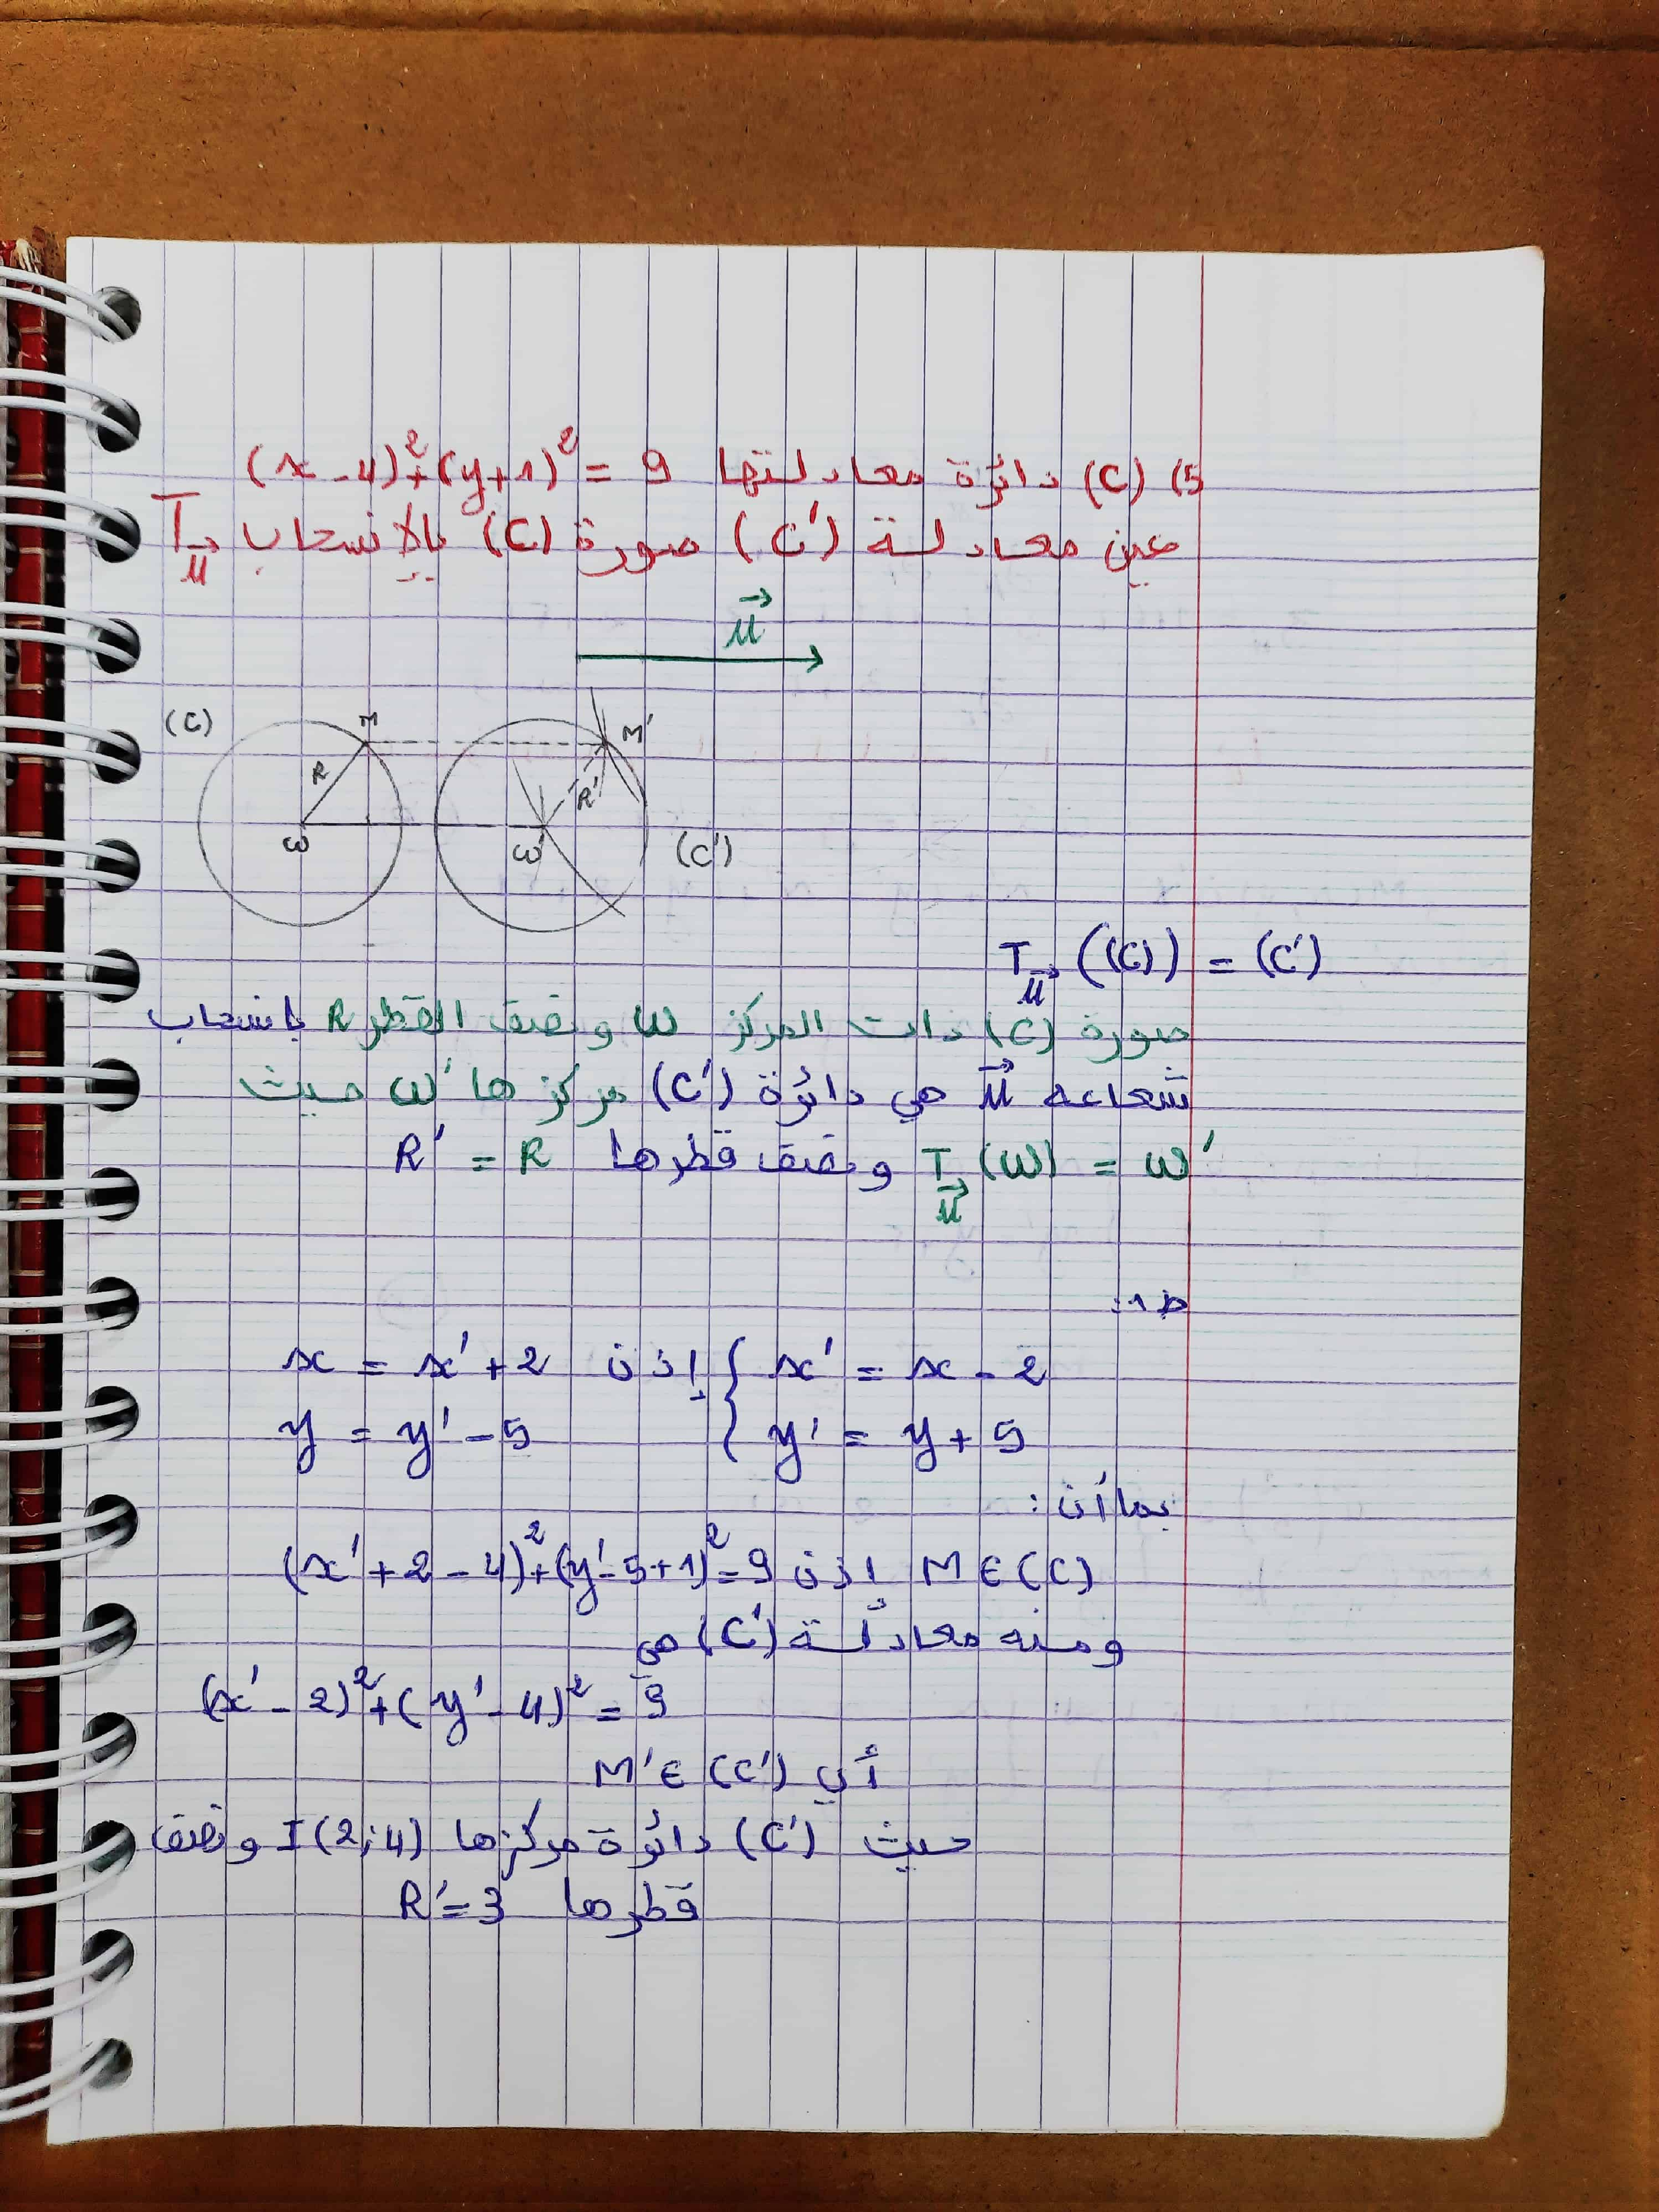 5) (C) دائرة معادلتها (x-4)²+(y+1)²=9
عين معادلة (C') صورة (C) بالإنسحاب T_u⃗
u⃗
(C) M M'
R R'
ω ω' (C')
T_u⃗ ((C)) = (C')
صورة (C) ذات المركز ω ونصف القطر R بانسحاب
شعاعه u⃗ هي دائرة (C') مركزها ω' حيث
T_u⃗ (ω) = ω' ونصف قطرها R' = R
ط1:
{ x' = x - 2 إذن x = x' + 2
{ y' = y + 5 y = y' - 5
بما أن:
M∈(C) إذن (x'+2-4)²+(y'-5+1)²=9
ومنه معادلة (C') هي
(x'-2)²+(y'-4)²=9
أي M'∈(C')
حيث (C') دائرة مركزها I(2;4) ونصف
قطرها R'=3